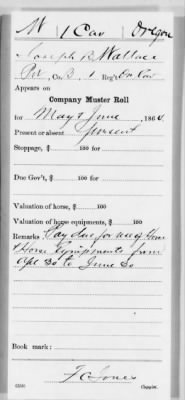 W | 1 Cav | Oregon
Joseph B. Wallace
Pvt, Co. B, 1 Reg't Or. Cav
Appears on
Company Muster Roll
for May & June, 1864.
Present or absent present
Stoppage, $ 100 for
Due Gov't, $ 100 for
Valuation of horse, $ 100
Valuation of horse equipments, $ 100
Remarks Pay due for use of Horse
& Horse Equipments from
Apl 30 to June 30
Book mark:
F C Jones
Copyist.